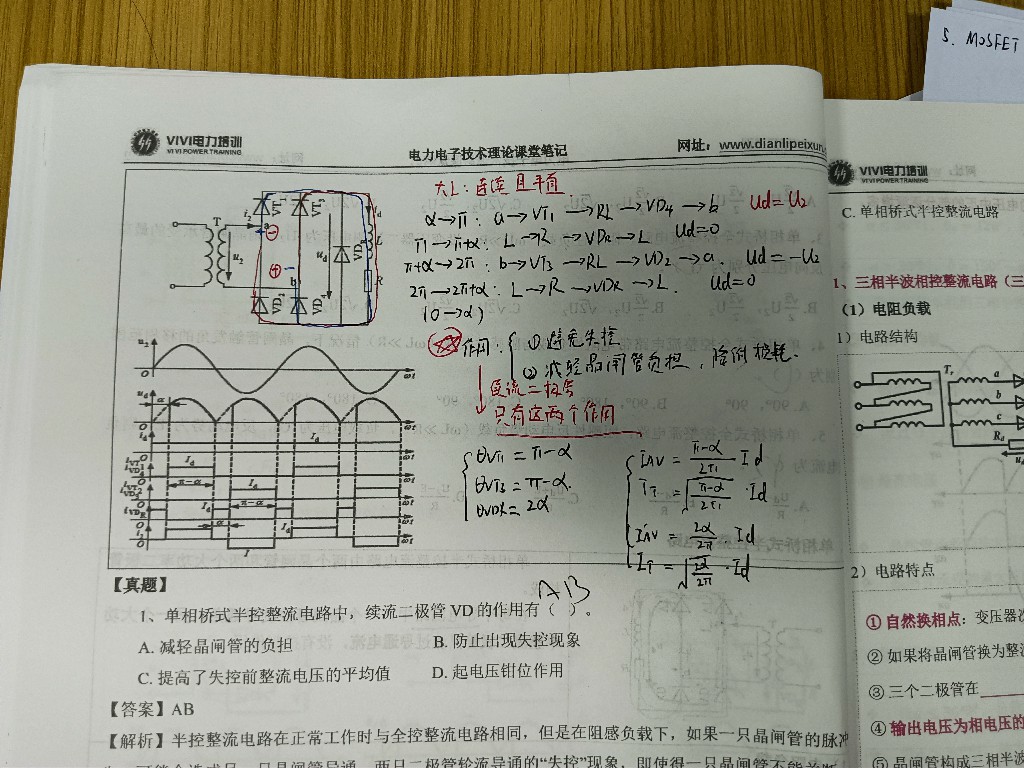 S. MOSFET
VIVI电力培训
VIVI POWER TRAINING
电力电子技术理论课堂笔记
网址：www.dianlipeixun
大L：连续且平直
α→π：a→VT₁→RL→VD₄→b Ud=U₂
π→π+α：L→R→VDR→L Ud=0
π+α→2π：b→VT₃→RL→VD₂→a. Ud=-U₂
2π→2π+α：L→R→VDR→L. Ud=0
(0→α)
作用：① 避免失控
② 减轻晶闸管负担，降低损耗.
续流二极管
只有这两个作用
θVT1=π-α
θVT3=π-α
θVDR=2α
IAV=π-α/2π Id
IT=√π-α/2π·Id
IAV=2α/2π·Id
IT=√2α/2π·Id
T
i₂
u₂
a
b
VT₁
VT₃
VD₂
VD₄
u_d
VD_R
i_d
L
R
u₂
O
ωt
u_d
α
O
ωt
i_d
I_d
O
ωt
I_d
π-α
ωt
I_d
π-α
ωt
I_d
α
ωt
i₂
I_d
O
ωt
【真题】
AB
1、单相桥式半控整流电路中，续流二极管 VD 的作用有（ ）。
A. 减轻晶闸管的负担
B. 防止出现失控现象
C. 提高了失控前整流电压的平均值
D. 起电压钳位作用
【答案】AB
【解析】半控整流电路在正常工作时与全控整流电路相同，但是在阻感负载下，如果一只晶闸管的脉冲
VIVI电力培训
VIVI POWER TRAINING
C. 单相桥式半控整流电路
1、三相半波相控整流电路（三
（1）电阻负载
1）电路结构
T_r
a
b
c
R_d
2）电路特点
① 自然换相点：变压器
② 如果将晶闸管换为整
③ 三个二极管在
④ 输出电压为相电压的
⑤ 晶闸管构成三相半波